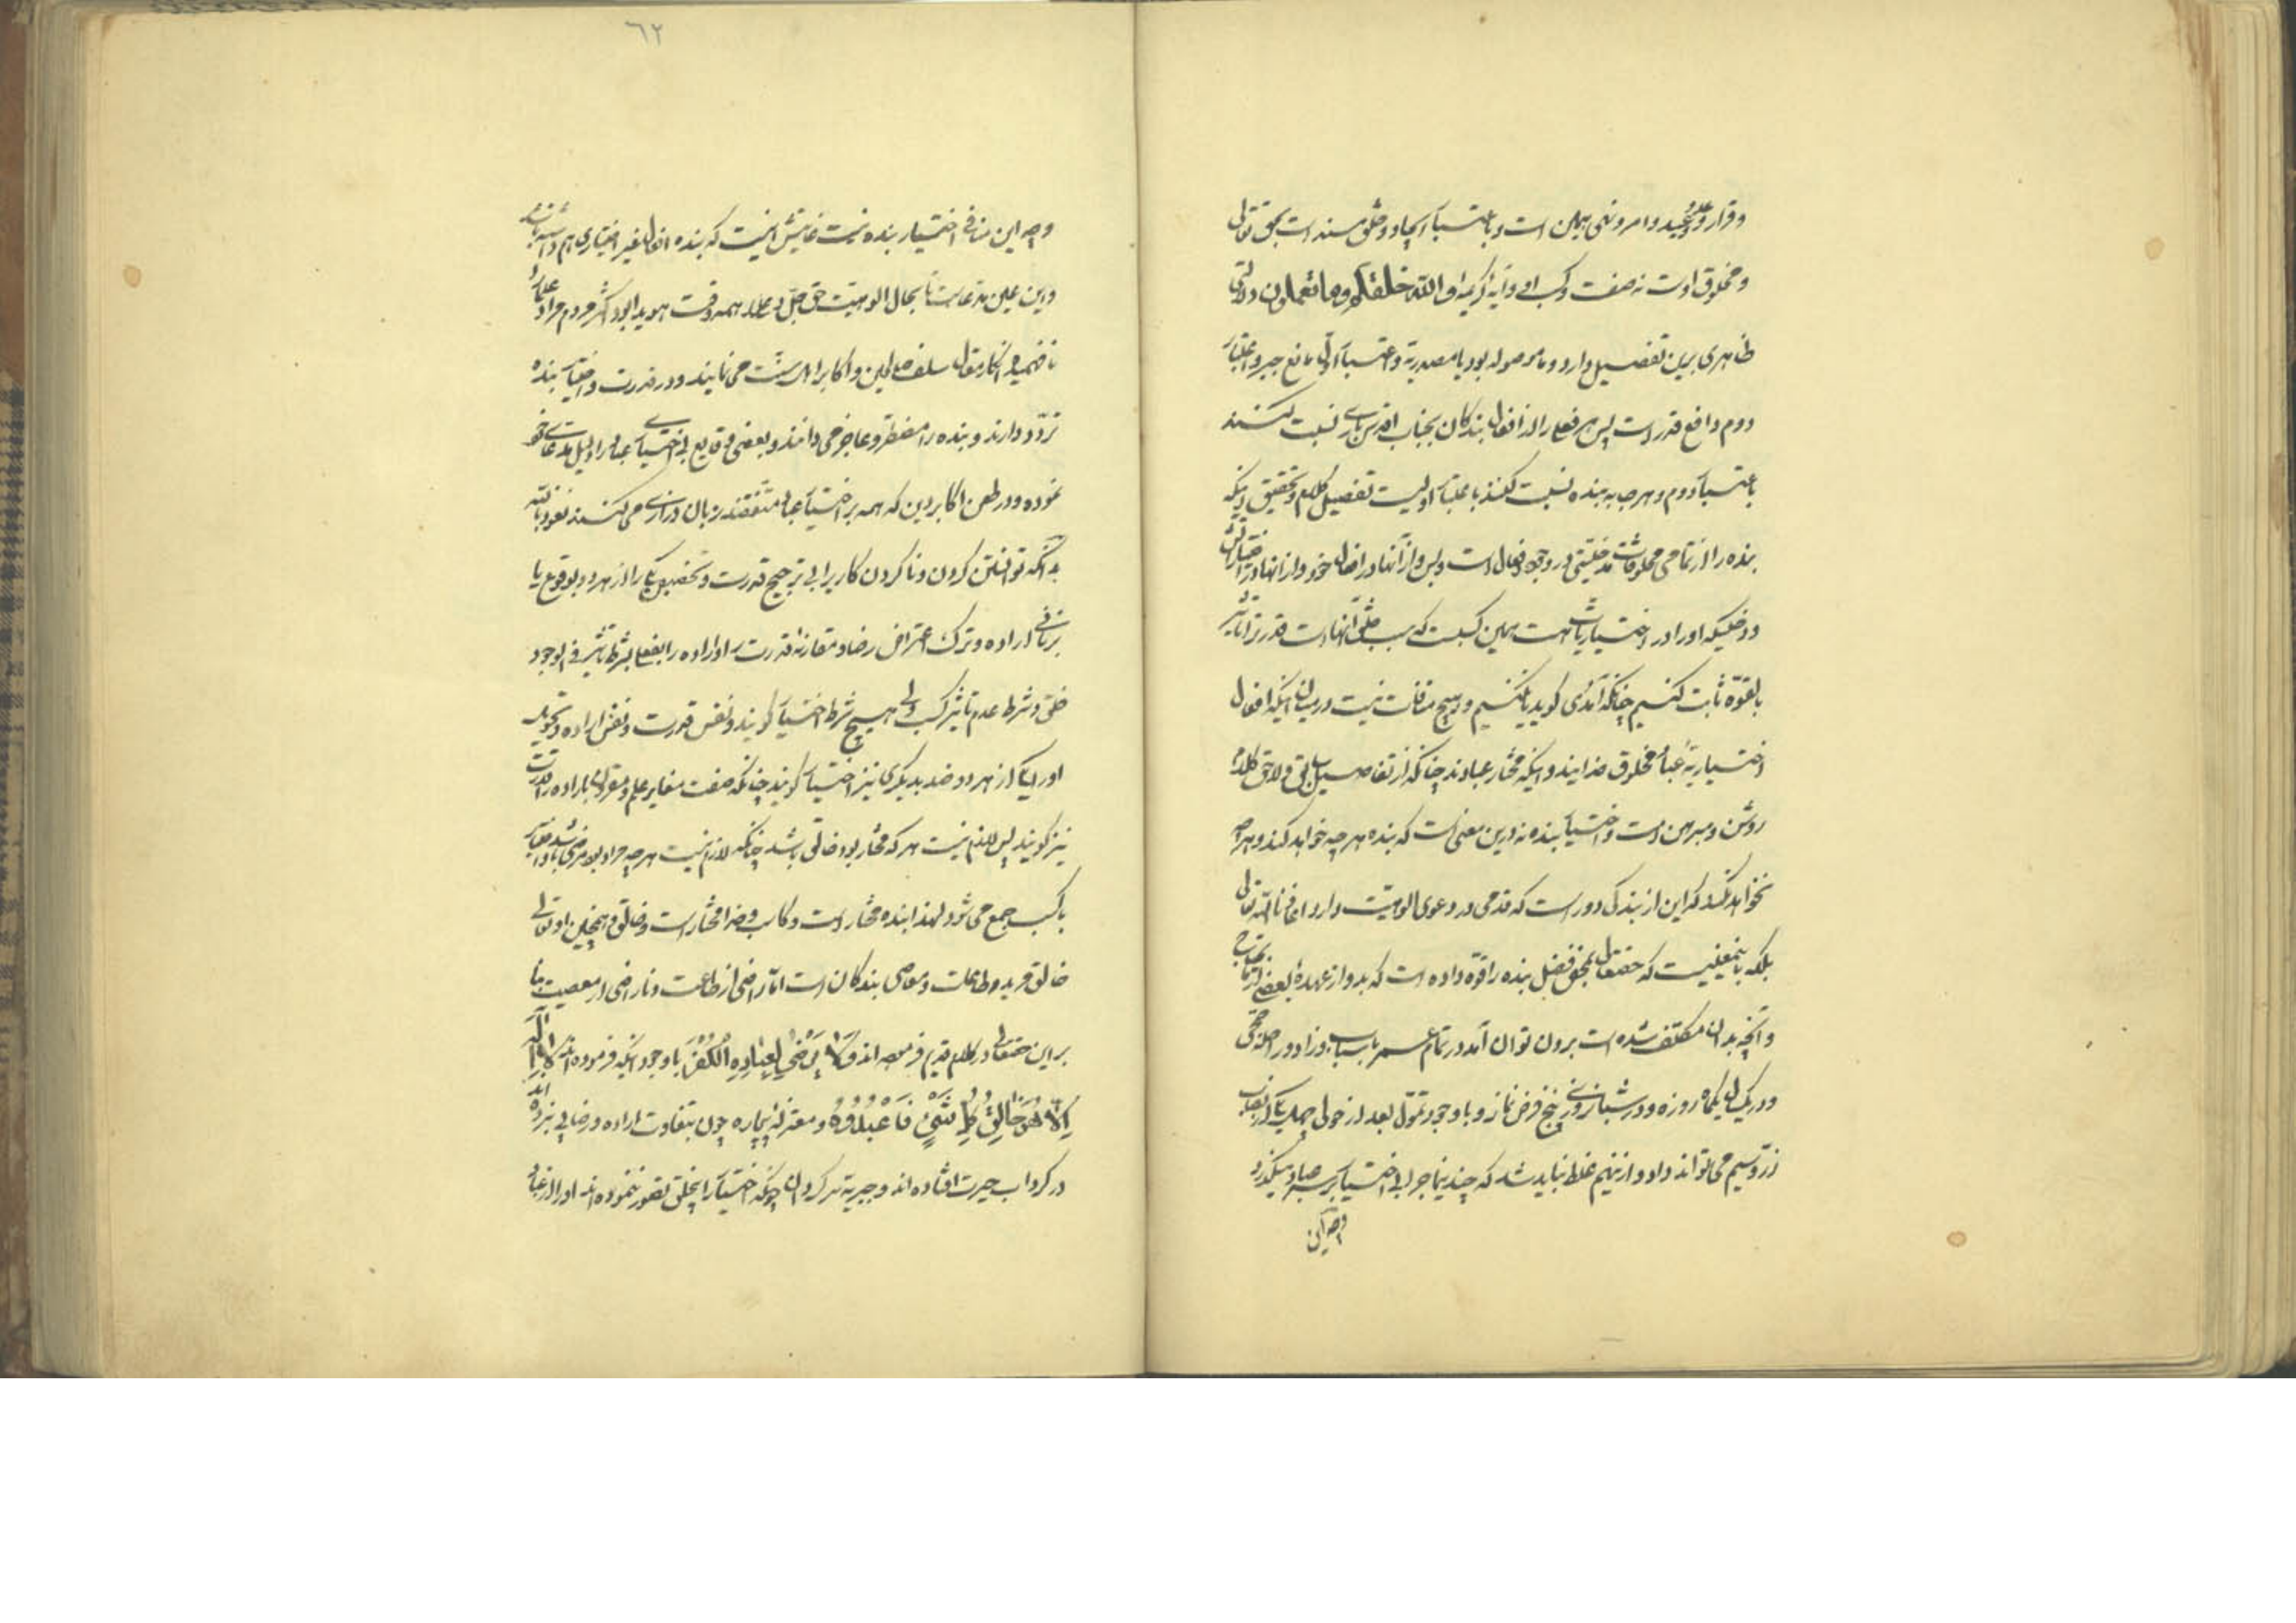 وقرار وعد و وعید و امر و نهی بهمین است و باعتبار ایجاد و خلق مسند است بحق تعالی
و مخلوق اوست نه صفت و کسب او و آیه کریمه و الله خلقکم وما تعملون دلالتی
ظاهری برین تفصیل دارد و ما موصوله بود یا مصدریه و اعتبار اول مانع جبر و اعتبار
دوم دافع قدر است پس هر فعل را از افعال بندکان بجناب اقدس باری نسبت کنند
باعتبار دوم و هر چه به بنده نسبت کنند باعتبار اولست تفصیل کلام و تحقیق اینکه
بنده را از تمامی مخلوقات مدخلیتی در وجود افعال است و بس و از آنها در افعال خود و از انها در اختیاریاتش
و دخلیکه او را در اختیاریات هست همین کسبست که سبب خلق آنهاست قدرت را تاثیر
بالقوّه ثابت کنیم چنانکه آمدی کوید یا نکنیم و هیچ منافات نیست درمیان اینکه افعال
اختیاریه عباد مخلوق خدایند و اینکه مختار عبادند چنانکه از تفاصیل سابق و لاحق کلام
روشن و مبرهن است و اختیار بنده نه درین معنی است که بنده هر چه خواهد کند و هر چه
نخواهد نکند که این از بندکی دور است که قدمی در دعوی الوهیت دارد اعاذنا الله تعالی
بلکه باینمعنیست که حقتعالی بمحض فضل بنده را قوّه داده است که بدو از عهدهٔ بعضی
و آنچه بدان مکلف شده است برون توان آمد در تمام عمر باسباب و زاد و راحله حجی
و در یک سال یکماه روزه و در شبانروزی پنج فرض نماز و با وجود تموّل بعد از حول چهل یک از نصاب
زر و سیم می تواند داد و ازینهم غلط نباید شد که چندین ماجرا بی اختیار بر سر عباد میکذرد
وجه این
٦٢
وجه این منافی اختیار بنده نیست غایتش اینست که بنده افعال غیر اختیاری هم داشته باشد
و این عین مدعاست تا بجال الوهیت حق جلّ و علا همه وقت هویدا بود اکثر مردم مراد علما را
نافهمیده انکار مقال سلف صالحین و اکابر اهل سنت می نمایند و در قدرت و اختیار بنده
تردّد دارند و بنده را مضطر و عاجز می دانند و بعضی وقایع بی اختیاری عباد را دلیل مدعای خود
نموده و در طعن اکابر دین که همه بر اختیار عباد متفقند زبان درازی می کنند نعوذ بالله
بدانکه توانستن کردن و ناکردن کاریرا بی ترجیح قدرت و تخصیص یکی را از هر دو بوقوع یا
اراده و ترک اعتراض رضا و مقارنه قدرت و اراده را بفعل بشرط تاثیر فی الوجود
خلق و شرط عدم تاثیر کسب و بی هیچ شرط اختیار کویند و نفس قدرت و نفس اراده و تحویل
او را یکی از هر دو ضد بدیکری نیز اختیار کویند چنانکه صفت مغایر علم و مقرون باراده را قدرت
نیز کویند پس لازم نیست هر که مختار بود خالق باشد چنانکه لازم نیست هر چه مراد بود مرضی باشد و اختیار
با کسب جمع می شود لهذا بنده مختار است و کاسب و خدا مختار است و خالق و همچنین او تعالی
خالق و مرید طاعات و معاصی بندکان است امّا راضی از طاعت و ناراضی از معصیت بنا
بر این حقتعالی در کلام قدیم فرموده اند وَلَا يَرْضَى لِعِبَادِهِ الْكُفْرَ با وجود اینکه فرموده اند لَا إِلَهَ
إِلَّا هُوَ خَالِقُ كُلِّ شَيْءٍ فَاعْبُدُوهُ و معتزله بیچاره چون بتفاوت اراده و رضا پی نبرده اند
در کرداب حیرت افتاده اند و جبریه سرکردان چونکه اختیار را بخلق تصور نموده اند او را از عباد